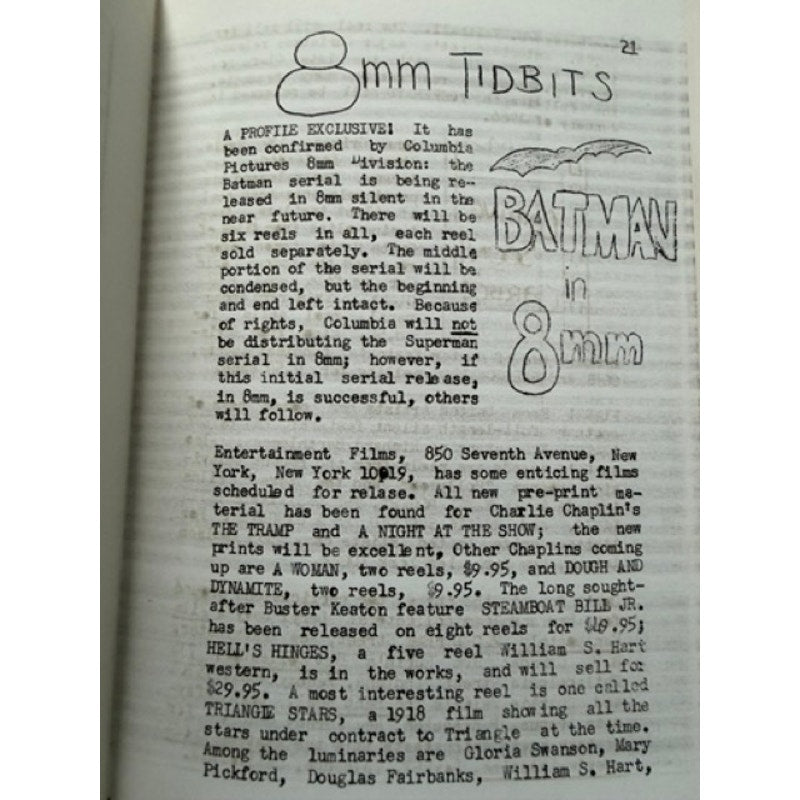 21
8mm TIDBITS
A PROFILE EXCLUSIVE! It has
been confirmed by Columbia
Pictures 8mm Division: the
Batman serial is being re-
leased in 8mm silent in the
near future. There will be
six reels in all, each reel
sold separately. The middle
portion of the serial will be
condensed, but the beginning
and end left intact. Because
of rights, Columbia will not
be distributing the Superman
serial in 8mm; however, if
this initial serial release,
in 8mm, is successful, others
will follow.
BATMAN
in
8mm
Entertainment Films, 850 Seventh Avenue, New
York, New York 10019, has some enticing films
scheduled for relase. All new pre-print ma-
terial has been found for Charlie Chaplin's
THE TRAMP and A NIGHT AT THE SHOW; the new
prints will be excellent, Other Chaplins coming
up are A WOMAN, two reels, $9.95, and DOUGH AND
DYNAMITE, two reels, $9.95. The long sought-
after Buster Keaton feature STEAMBOAT BILL JR.
has been released on eight reels for
HELL'S HINGES, a five reel William S. Hart
western, is in the works, and will sell for
$29.95. A most interesting reel is one called
TRIANGLE STARS, a 1918 film showing all the
stars under contract to Triangle at the time.
Among the luminaries are Gloria Swanson, Mary
Pickford, Douglas Fairbanks, William S. Hart,